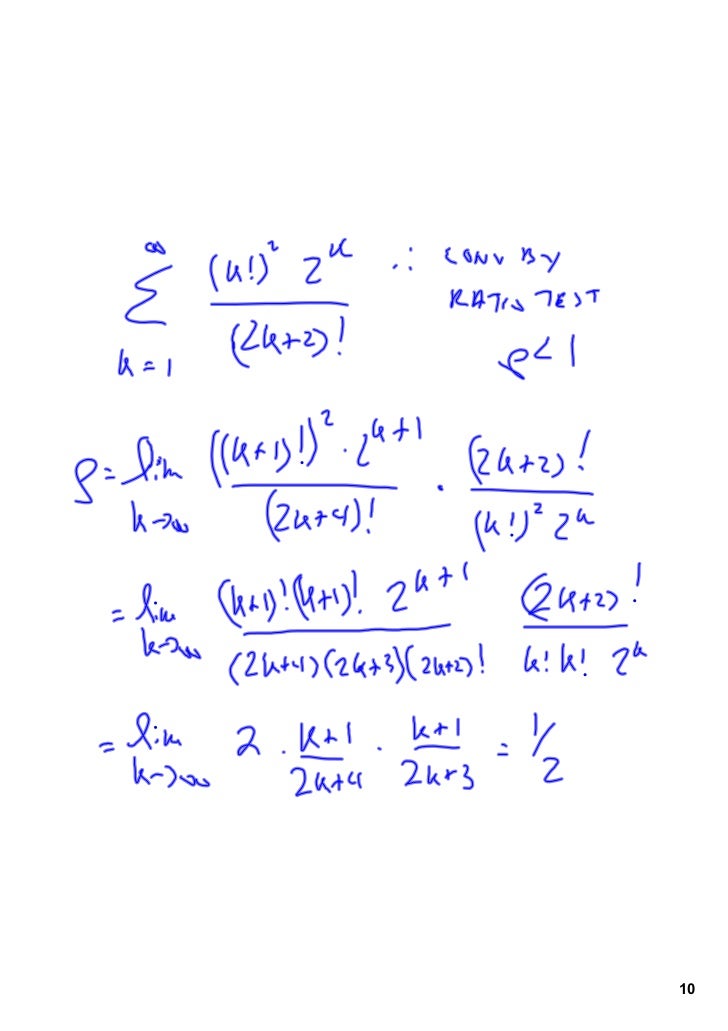 ∑_{k=1}^{∞} \frac{(k!)^2 2^k}{(2k+2)!} ∴ CONV BY
RATIO TEST
ρ < 1
ρ = lim_{k→∞} \frac{((k+1)!)^2 · 2^{k+1}}{(2k+4)!} · \frac{(2k+2)!}{(k!)^2 2^k}
= lim_{k→∞} \frac{(k+1)!(k+1)! 2^{k+1}}{(2k+4)(2k+3)(2k+2)!} \frac{(2k+2)!}{k! k! 2^k}
= lim_{k→∞} 2 · \frac{k+1}{2k+4} · \frac{k+1}{2k+3} = 1/2
10